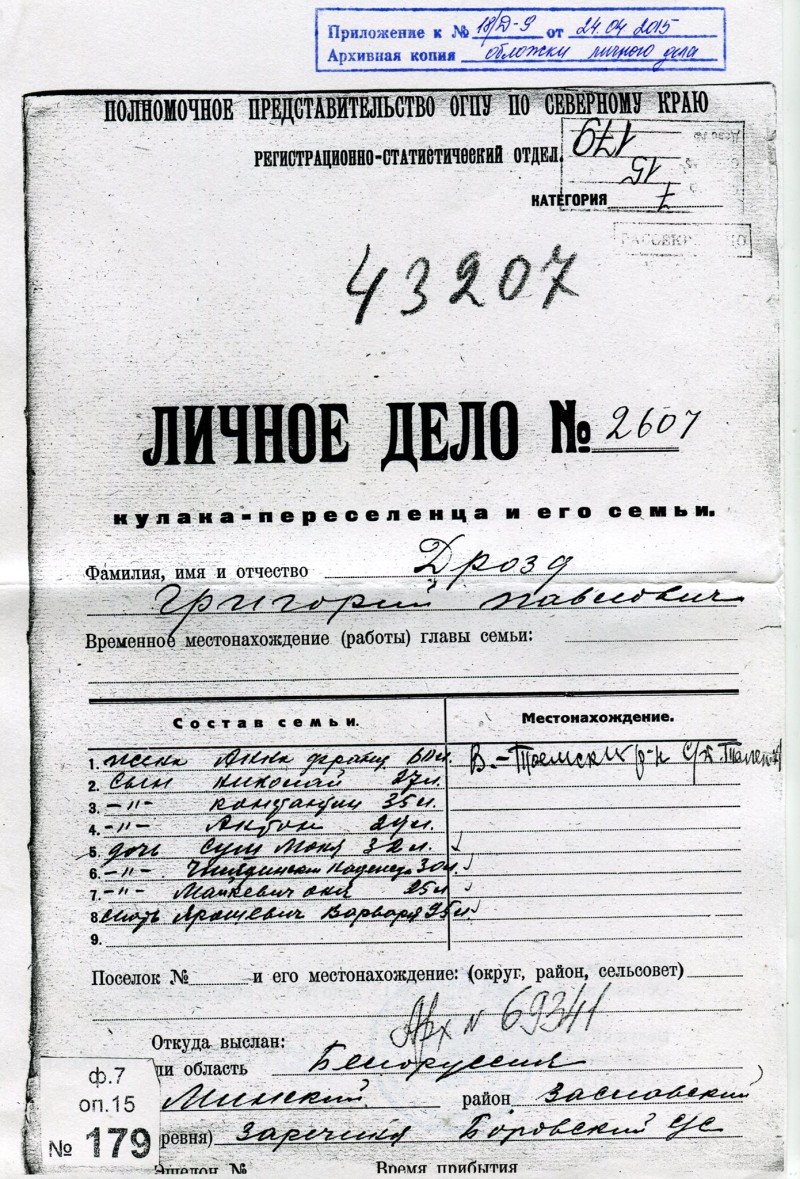 Приложение к № 18/Д-9 от 24.04 2015
Архивная копия обложки личного дела
ПОЛНОМОЧНОЕ ПРЕДСТАВИТЕЛЬСТВО ОГПУ ПО СЕВЕРНОМУ КРАЮ
РЕГИСТРАЦИОННО-СТАТИСТИЧЕСКИЙ ОТДЕЛ.
179
15
КАТЕГОРИЯ 7
43207
ЛИЧНОЕ ДЕЛО № 2607
кулака-переселенца и его семьи.
Фамилия, имя и отчество Дрозд
Григорий Павлович
Временное местонахождение (работы) главы семьи:
Состав семьи. Местонахождение.
1. жена Анна 60 л. В.-Тоемск р-н
2. сын Николай 27 л.
3. —"— Константин 35 л.
4. —"— Антон 29 л.
5. дочь Сущ 32 л.
6. —"— 30 л.
7. —"— Мацкевич 25 л.
8. Ярошевич Варвара 95 л.
9.
Поселок № и его местонахождение: (округ, район, сельсовет)
Арх № 69341
Откуда выслан:
ли область Белоруссия
Минский район Заславский
ревня) Боровский с/с
Эшелон № Время прибытия
ф.7
оп.15
№ 179